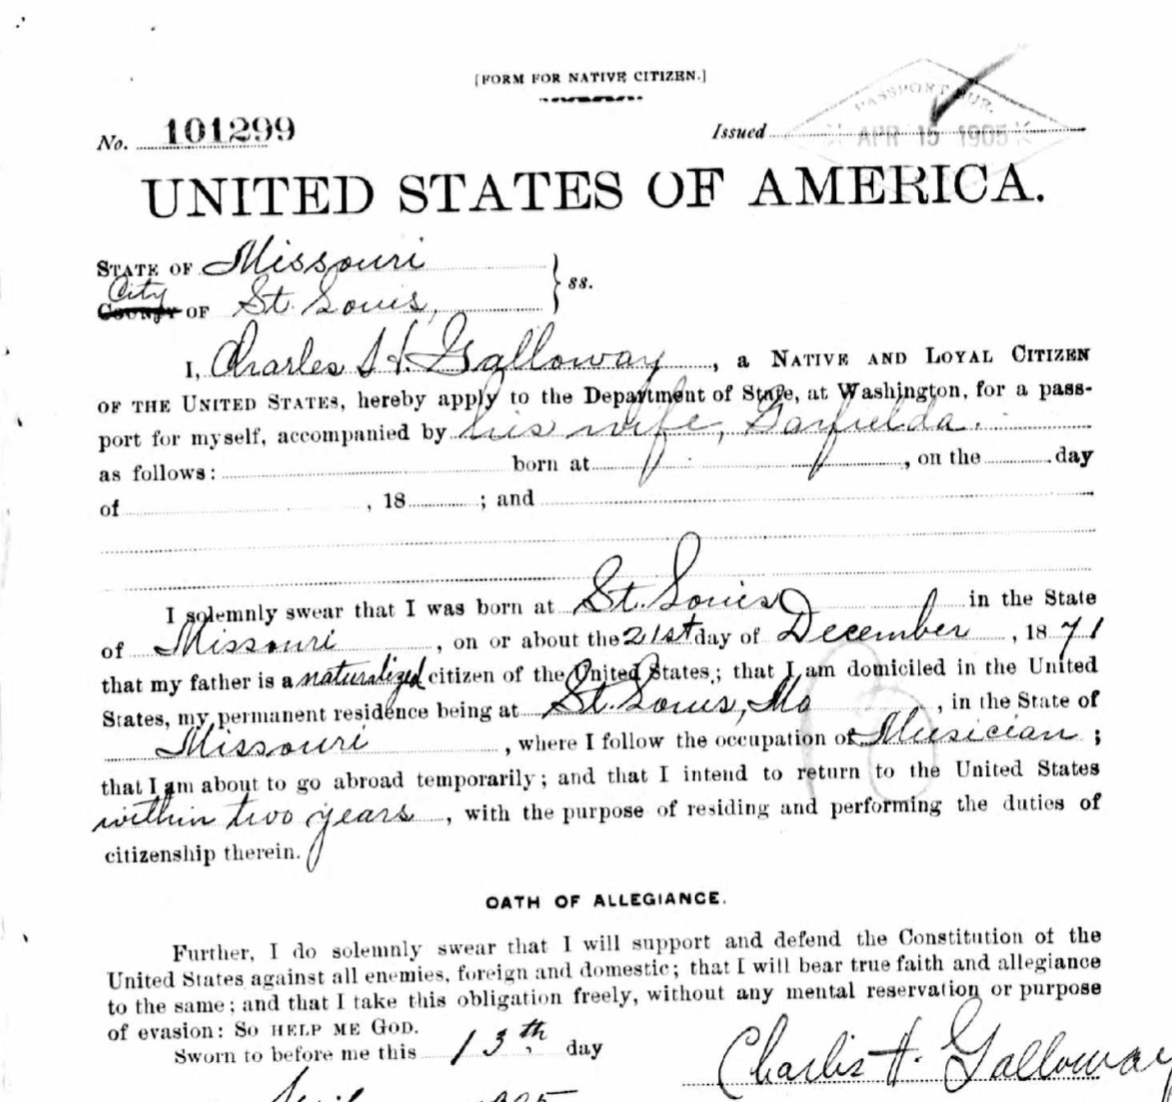 [FORM FOR NATIVE CITIZEN.]
No. 101299 Issued PASSPORT BUR. APR 15 1905
UNITED STATES OF AMERICA.
STATE OF Missouri
City
COUNTY OF St. Louis, } ss.
I, Charles H. Galloway, a NATIVE AND LOYAL CITIZEN
OF THE UNITED STATES, hereby apply to the Department of State, at Washington, for a pass-
port for myself, accompanied by his wife, Garfielda.
as follows: born at , on the day
of , 18 ; and
I solemnly swear that I was born at St. Louis in the State
of Missouri , on or about the 21st day of December , 1871
that my father is a naturalized citizen of the United States; that I am domiciled in the United
States, my permanent residence being at St. Louis, Mo , in the State of
Missouri , where I follow the occupation of Musician ;
that I am about to go abroad temporarily; and that I intend to return to the United States
within two years , with the purpose of residing and performing the duties of
citizenship therein.
OATH OF ALLEGIANCE.
Further, I do solemnly swear that I will support and defend the Constitution of the
United States against all enemies, foreign and domestic; that I will bear true faith and allegiance
to the same; and that I take this obligation freely, without any mental reservation or purpose
of evasion: SO HELP ME GOD.
Sworn to before me this 13th day
Charles H. Galloway